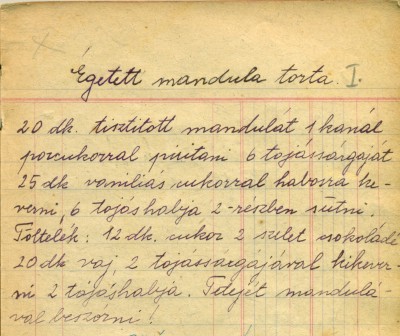 Égetett mandula torta. I.
20 dk. tisztitott mandulát 1 kanál
porcukorral piritani 6 tojássárgáját
25 dk vaniliás cukorral habosra ke-
verni, 6 tojás habja 2-részben sütni.
Töltelék: 12 dk. cukor 2 szelet csokoládé
20 dk vaj, 2 tojássárgájával kikever-
ni 2 tojáshabja. Tetejét mandulá-
val beszorni!